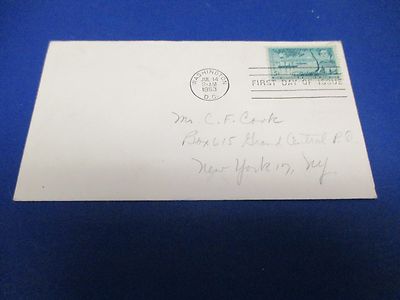 WASHINGTON
JUL 14
9-AM
1953
D.C.
FIRST DAY OF ISSUE
Mr. C. F. Cook
Box 615 Grand Central P.O.
New York 17, NY